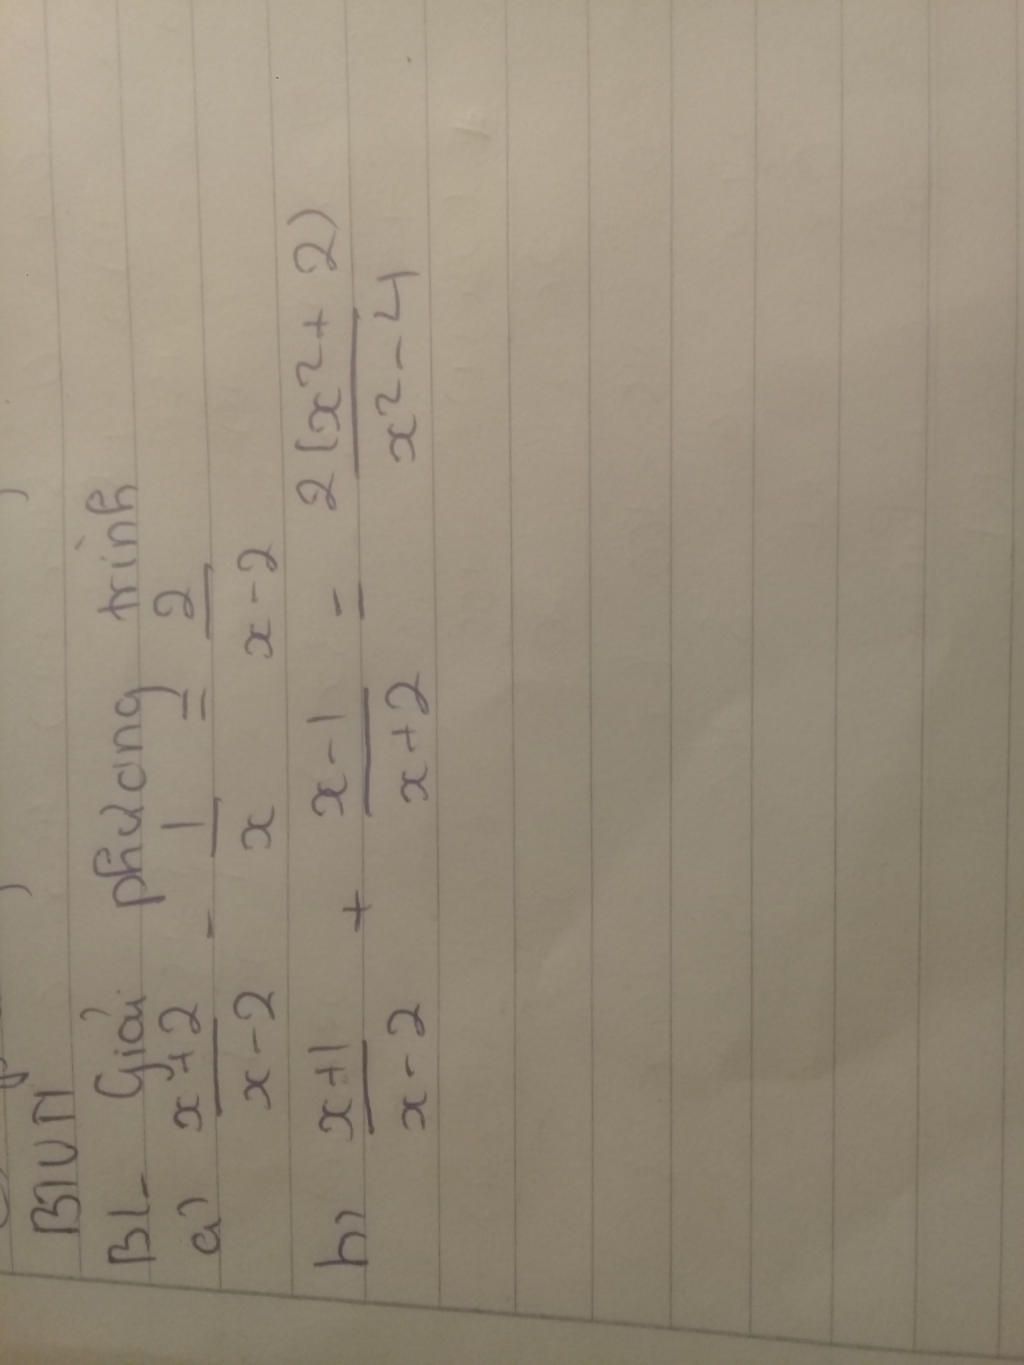 BTVN
B1- Giải phương trình
a) \frac{x+2}{x-2} - \frac{1}{x} = \frac{2}{x-2}
b) \frac{x+1}{x-2} + \frac{x-1}{x+2} = \frac{2(x²+2)}{x²-4}